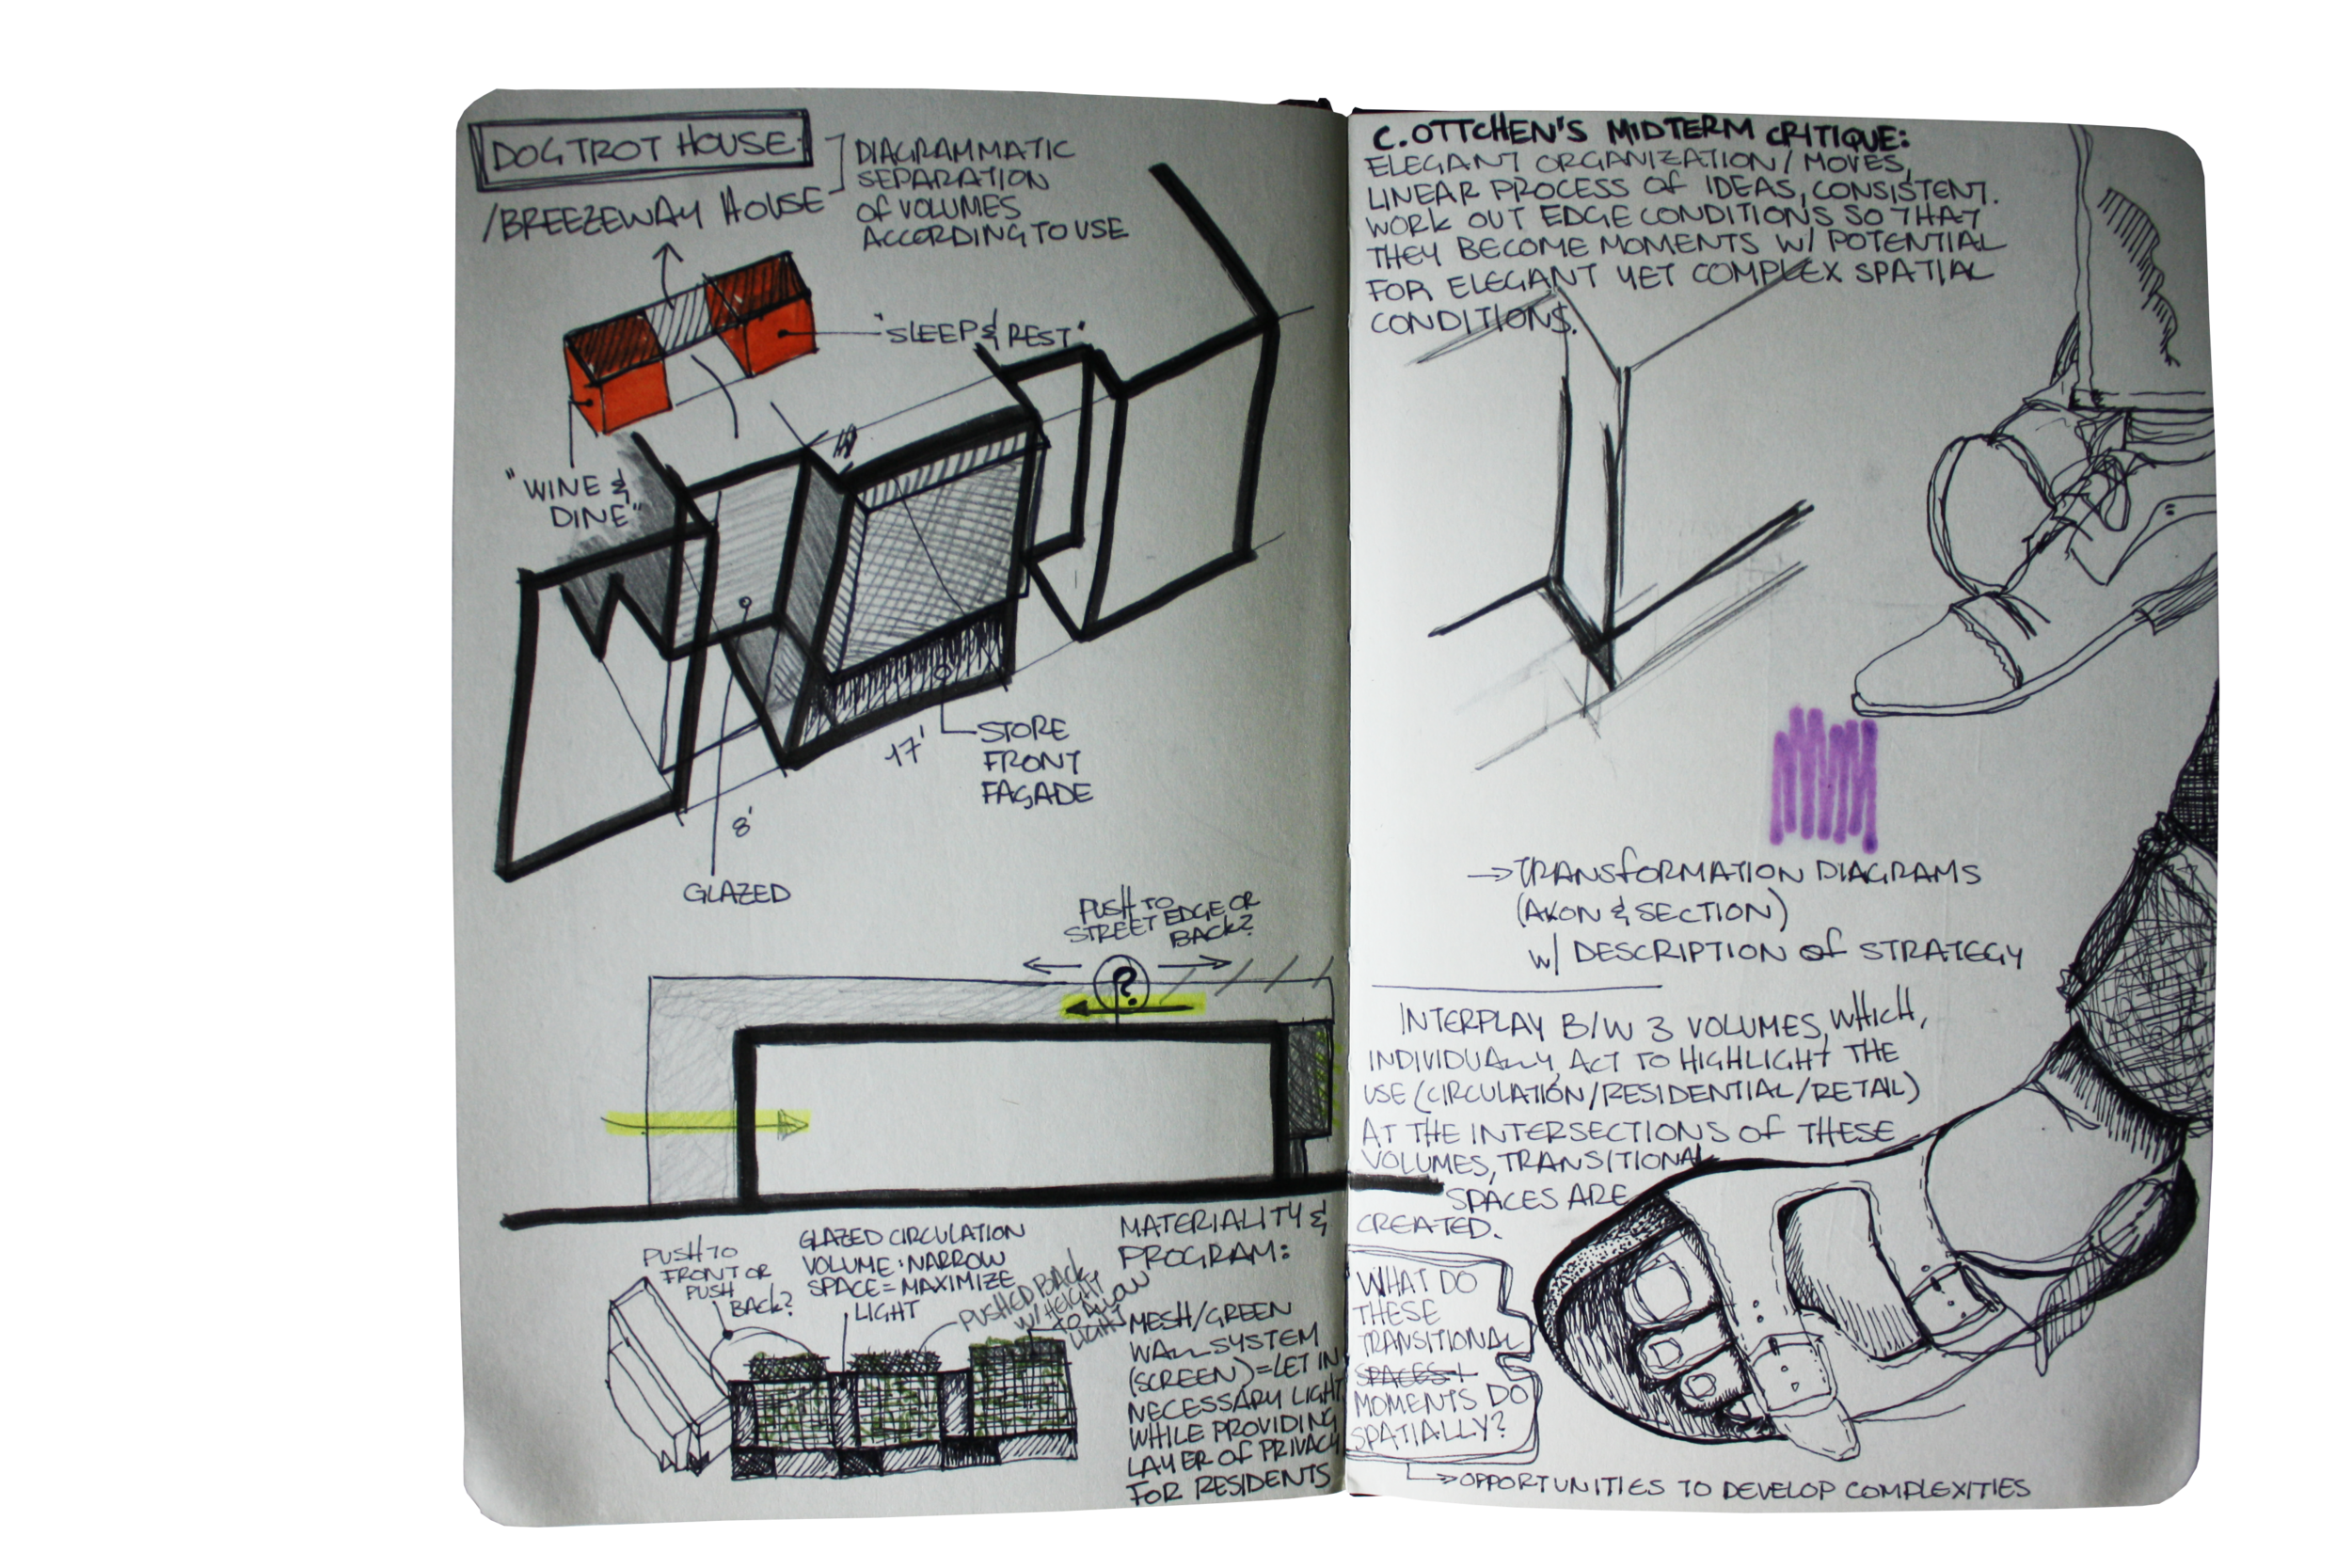 DOGTROT HOUSE:
/BREEZEWAY HOUSE
DIAGRAMMATIC
SEPARATION
OF VOLUMES
ACCORDING TO USE
"SLEEP & REST"
"WINE &
DINE"
STORE
FRONT
FAÇADE
17'
8'
GLAZED
PUSH TO
STREET EDGE OR
BACK?
?
PUSH TO
FRONT OR
PUSH
BACK?
GLAZED CIRCULATION
VOLUME: NARROW
SPACE = MAXIMIZE
LIGHT
PUSHED BACK
W/ HEIGHT
TO ALLOW
LIGHT
MATERIALITY &
PROGRAM:
MESH/GREEN
WALL SYSTEM
(SCREEN) = LET IN
NECESSARY LIGHT
WHILE PROVIDING
LAYER OF PRIVACY
FOR RESIDENTS
C. OTTCHEN'S MIDTERM CRITIQUE:
ELEGANT ORGANIZATION/MOVES,
LINEAR PROCESS OF IDEAS, CONSISTENT.
WORK OUT EDGE CONDITIONS SO THAT
THEY BECOME MOMENTS W/ POTENTIAL
FOR ELEGANT YET COMPLEX SPATIAL
CONDITIONS.
→ TRANSFORMATION DIAGRAMS
(AXON & SECTION)
W/ DESCRIPTION OF STRATEGY
INTERPLAY B/W 3 VOLUMES, WHICH,
INDIVIDUALLY, ACT TO HIGHLIGHT THE
USE (CIRCULATION/RESIDENTIAL/RETAIL)
AT THE INTERSECTIONS OF THESE
VOLUMES, TRANSITIONAL
SPACES ARE
CREATED.
WHAT DO
THESE
TRANSITIONAL
SPACES
MOMENTS DO
SPATIALLY?
→ OPPORTUNITIES TO DEVELOP COMPLEXITIES